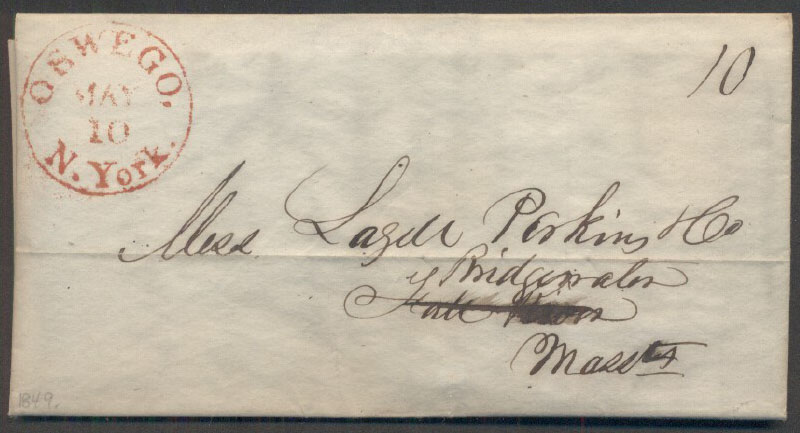 OSWEGO.
MAY
10
N. York.
10
Mess Lazell Perkins & Co
Bridgewater
Fall River
Massts
1849.